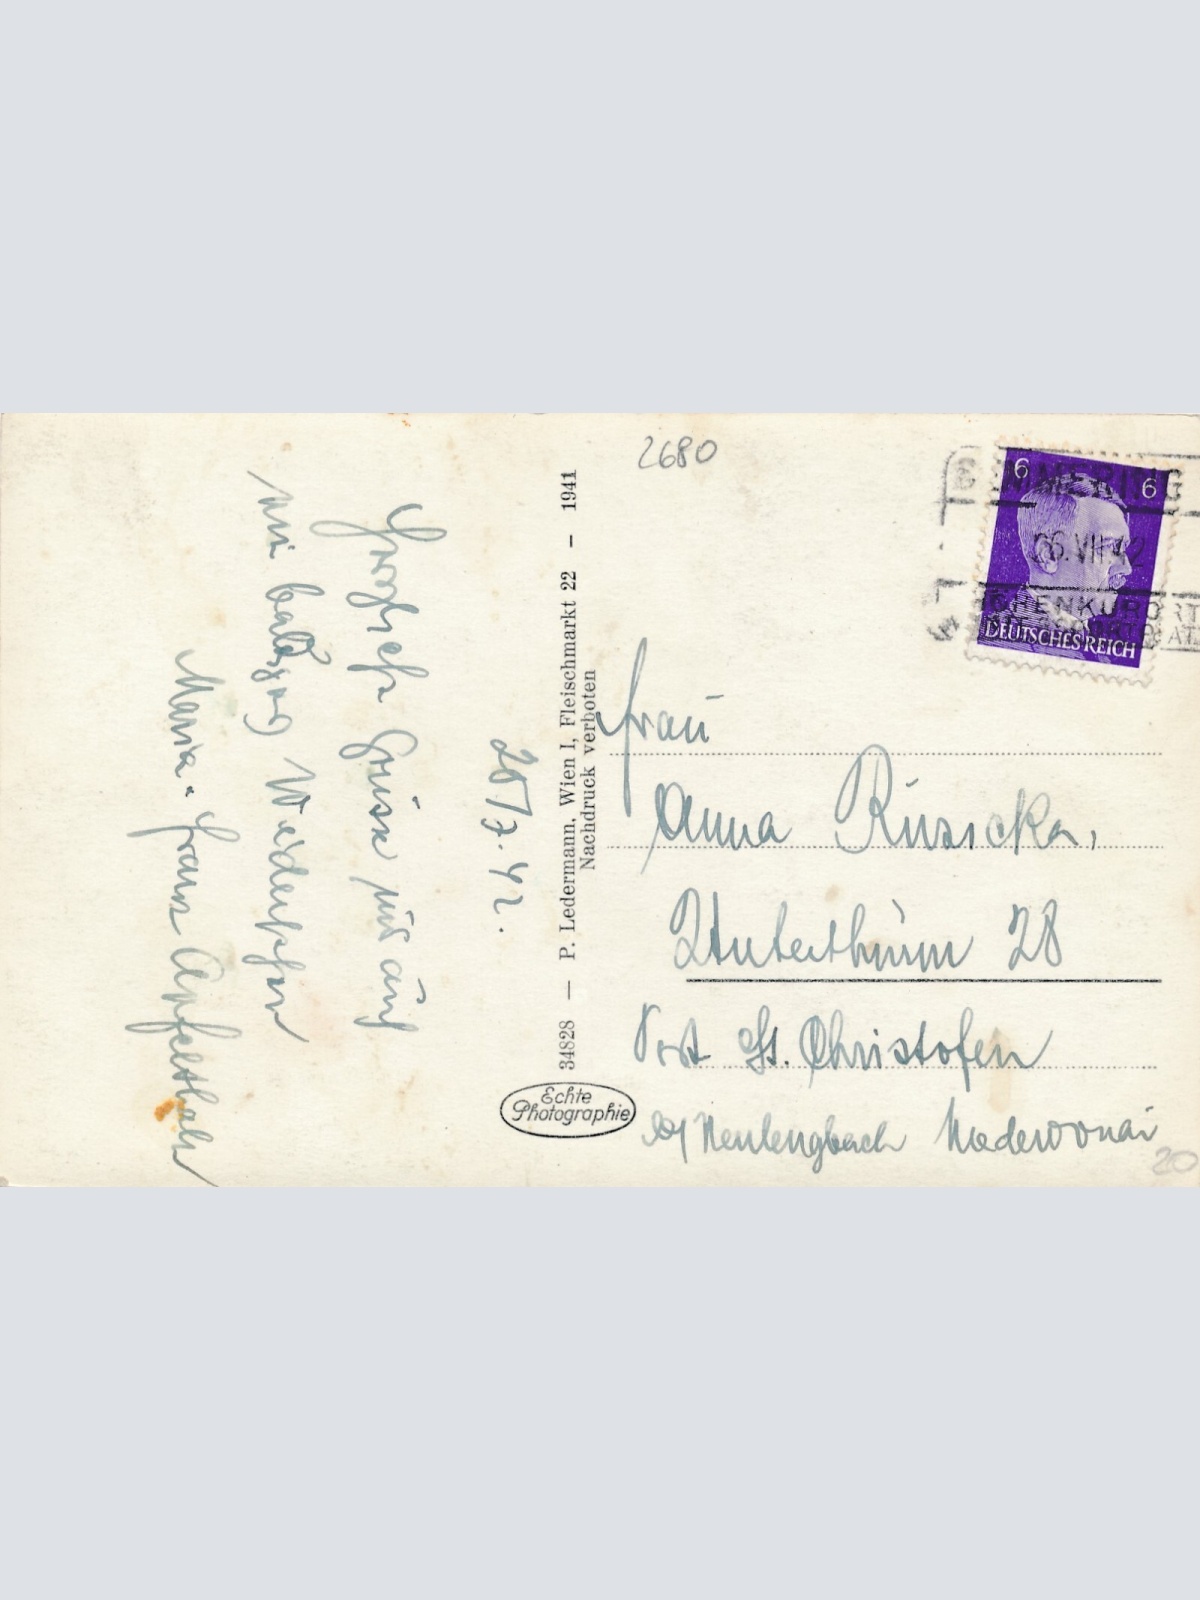 2680
SEMMERING
26.VII.42
HÖHENKURORT
6 6
DEUTSCHES REICH
26/7.42.
Herzliche Grüsse und auf
ein baldiges Wiedersehen
Maria. Franz Apfelthaler
34828 — P. Ledermann, Wien I, Fleischmarkt 22 — 1941
Nachdruck verboten
Echte
Photographie
Frau
Anna Rusicka,
Unterthurm 28
Post St. Christofen
b/ Neulengbach Niederdonau
20